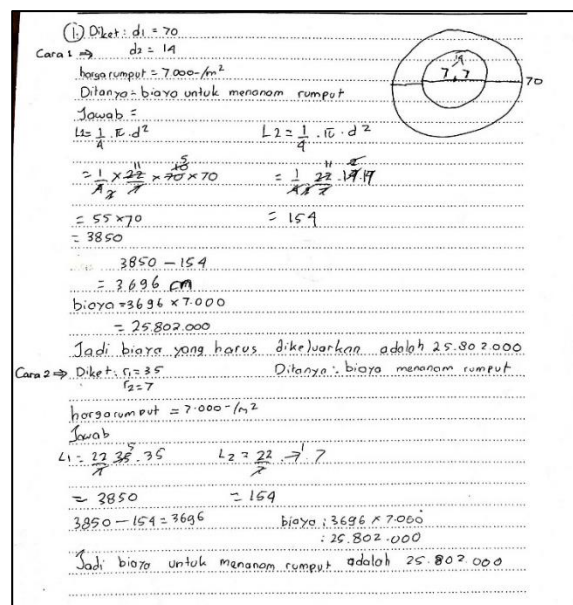 1. Diket : d1 = 70
Cara 1 ⇒ d2 = 14
harga rumput = 7.000-/m²
Ditanya = biaya untuk menanam rumput
7 7
70
Jawab =
L1 = 1/4 . π . d² L2 = 1/4 . π . d²
= 1/4 × 22/7 × 70 × 70 = 1/4 22/7 . 14.14
= 55 × 70 = 154
= 3850
3850 - 154
= 3.696 cm
biaya = 3696 × 7.000
= 25.802.000
Jadi biaya yang harus dikeluarkan adalah 25.802.000
Cara 2 ⇒ Diket : r1 = 35 Ditanya : biaya menanam rumput
r2 = 7
harga rumput = 7.000-/m²
Jawab
L1 = 22/7 35 . 35 L2 = 22/7 . 7 7
= 3850 = 154
3850 - 154 = 3696 biaya : 3696 × 7.000
: 25.802.000
Jadi biaya untuk menanam rumput adalah 25.802.000